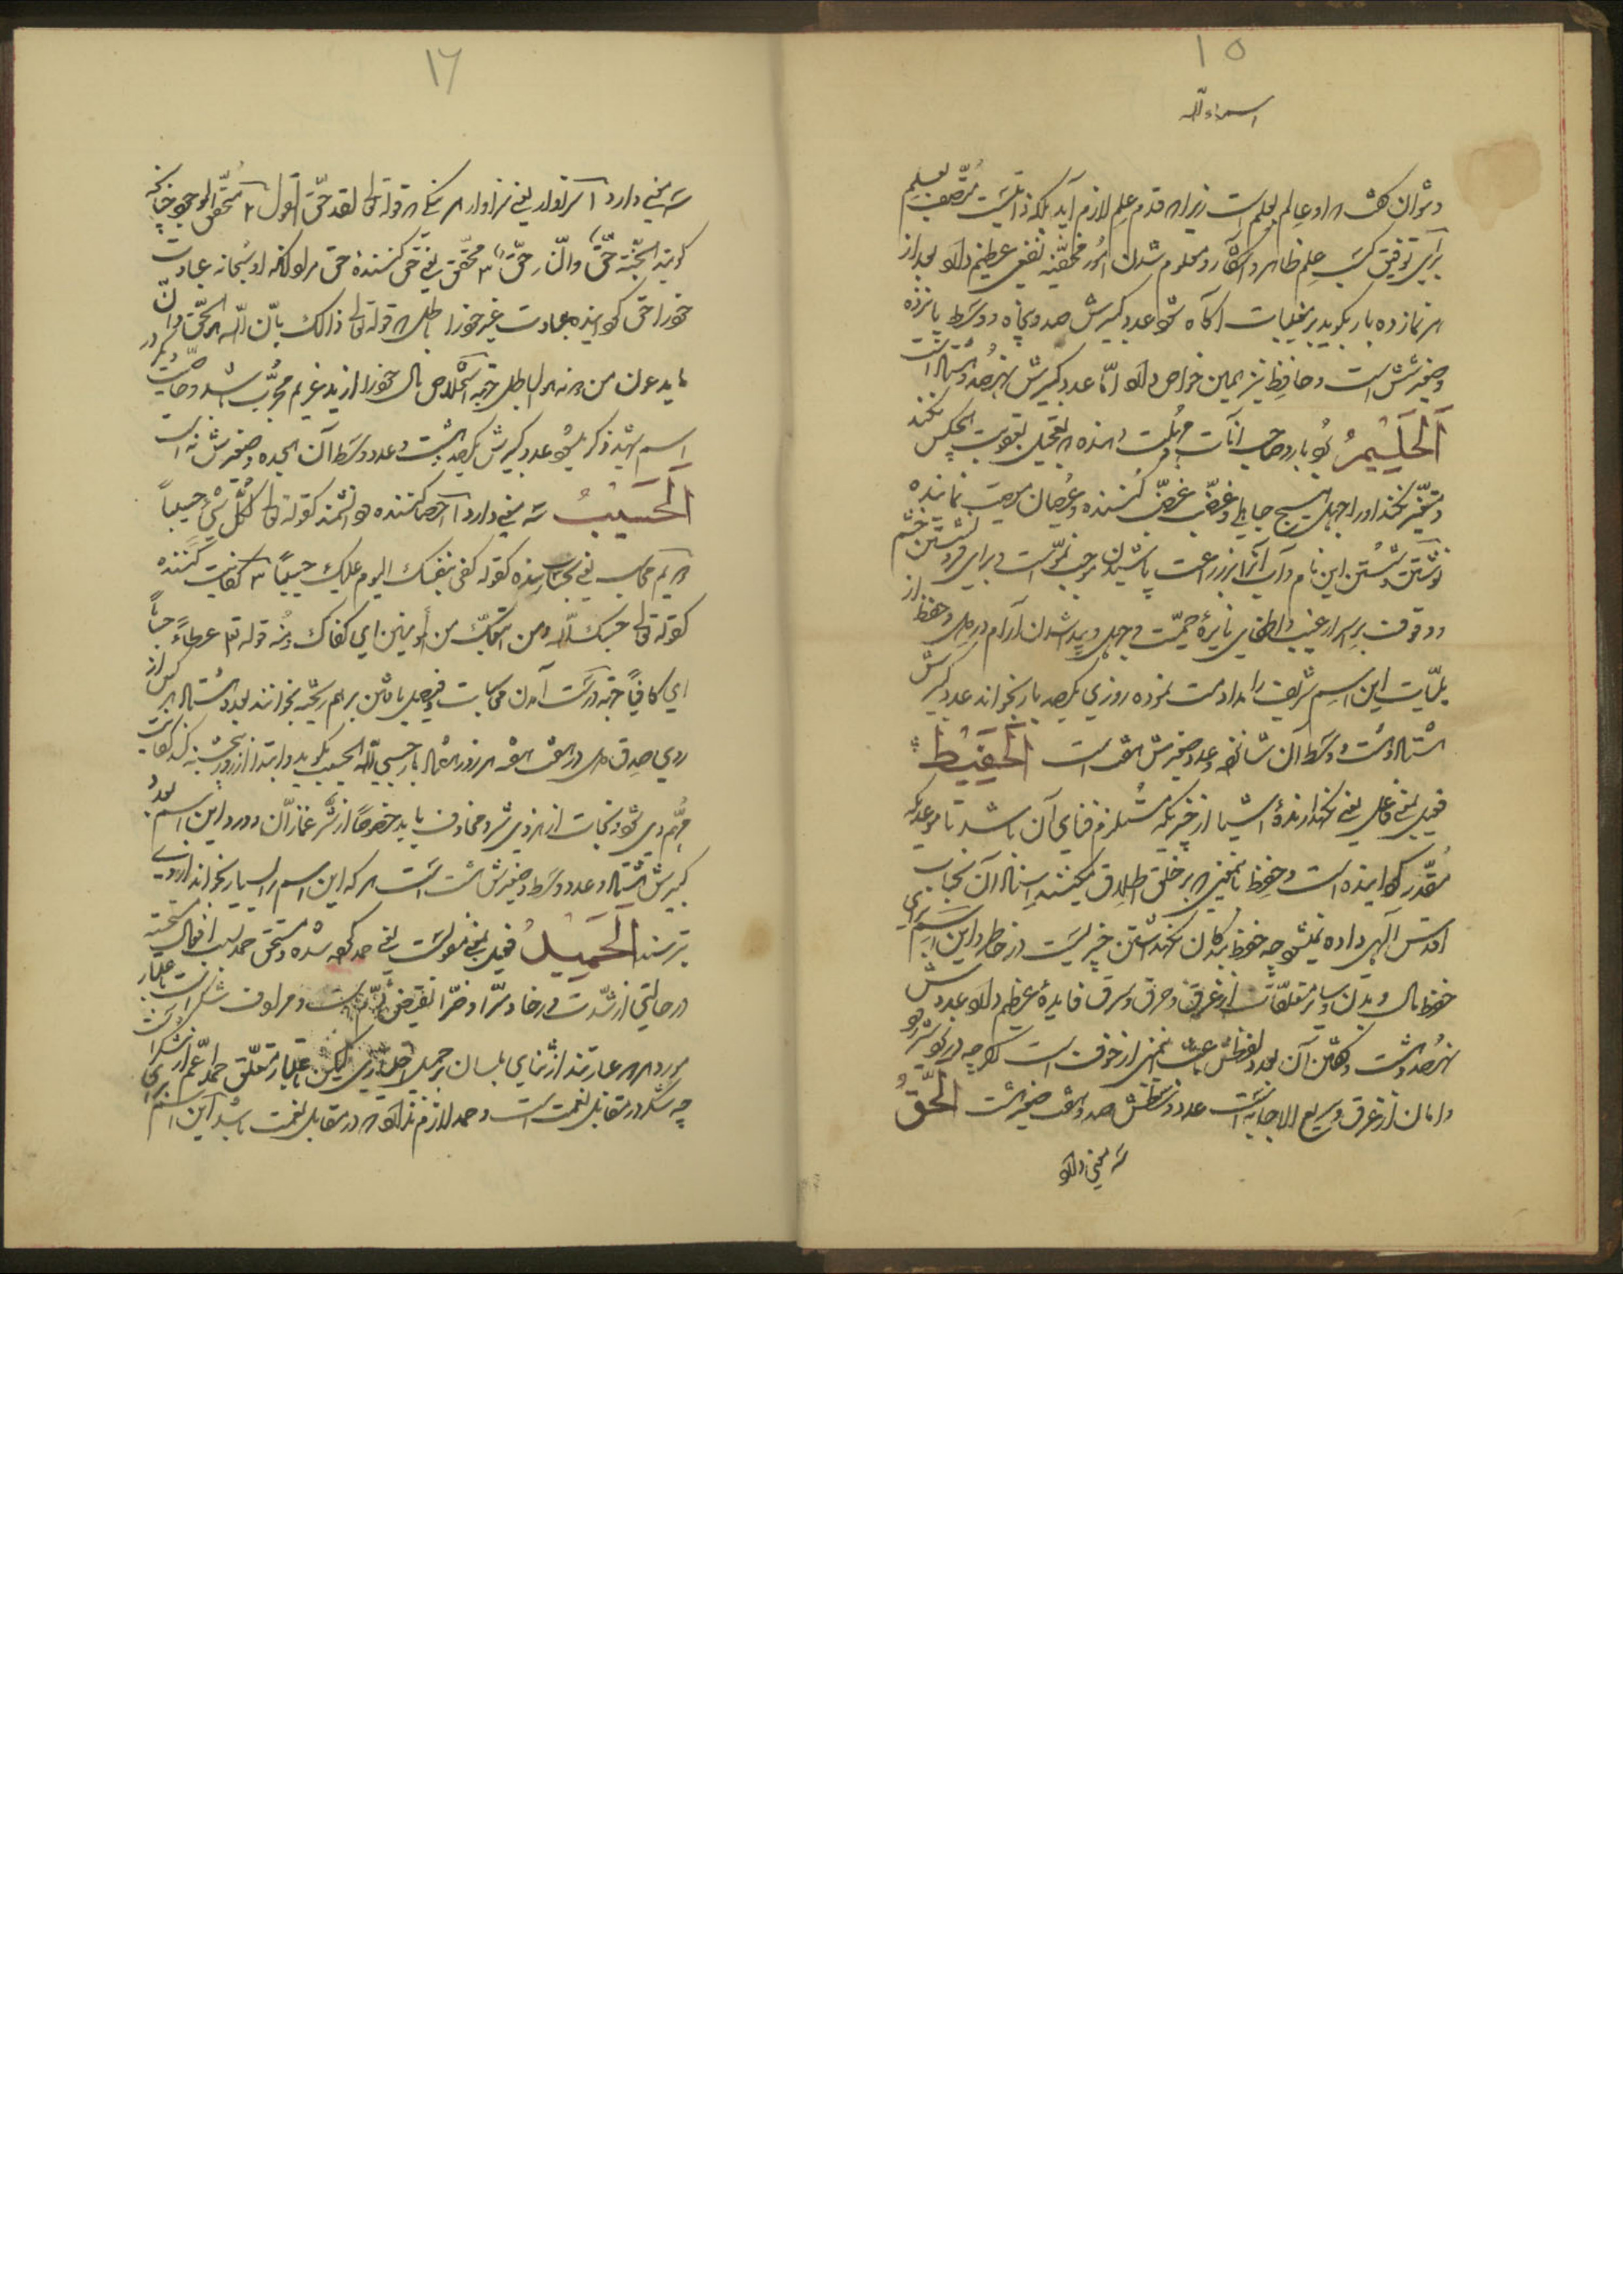 ۱۵
اسماءالله
و نتوان گفت که او عالم بعلم است زیرا که قدم علم لازم آید بلکه ذاتیست متصف بعلم
برای توفیق کسب علم ظاهر و آشکار و معلوم شدن امور مخفیّه نفعی عظیم دارد بعد از
هر نماز ده بار بگوید بر مغیبات آگاه شود عدد کبیرش صد و پنجاه و وسط پانزده
و صغیرش شش است و حافظ نیز همین خواص دارد امّا عدد کبیرش نهصد و هشتاد و نه است
اَلحَلیمُ بود بار و صاحب انات و مهلت دهنده که تعجیل بعقوبت هیچکس نکند
و متغیّر نکند او را جهل هیچ جاهلی و غضب غضب کننده و عصیان معصیت نماینده
نوشتن و شستن این نام و آب آنرا بر زراعت پاشیدن موجب نموّ است و برای فرو نشستن خشم
و وقوف بر اسرار غیب و اطفای نایرهٔ حمیّت و جهل و پدید شدن آرام در دل و حفظ از
بلیّات این اسم شریف را مداومت نموده روزی یکصد بار بخواند عدد کبیرش
هشتاد و هشت و وسط آن شانزده و عدد صغیرش هفت است اَلحَفیظُ
فعیل بمعنی فاعل یعنی نگهدارندهٔ اشیا از چیزیکه مستلزم فنای آن باشد تا موعدیکه
مقدّر گردانیده است و حفظ باینمعنی که بر خلق اطلاق میکنند اسناد آن بجناب
اقدس الهی داده نمیشود چه حفظ بندگان نگهداشتن چیزیست در خاطر و این اسم برای
حفظ مال و بدن و سایر متعلّقات از غرق و حرق و سرق فایدهٔ عظیم دارد عددش
نهصد و هشت و گفتن آن بعدد لفظش باعث ایمنی از خوف است اگرچه در
و امان از غرق و سریع الاجابه است عدد وسطش صد و هفت صغیرش هشت اَلحَقُّ
سه معنی دارد
۱۶
سه معنی دارد ۱ سزاوار یعنی سزاوار هر نیکی که قوله تعالی لقد حقّ القول ۲ متحقّق الوجود چنانکه
گویند الجنّة حقّ والنّار حقّ ۳ محقّق یعنی حق کنندهٔ حق مراد آنکه او سبحانه عبادت
خود را حق گردانیده و عبادت غیر خود را باطل که قوله تعالی ذالک بانّ الله هو الحقّ و انّ
ما یدعون من دونه هو الباطل جهة استخلاص مال خود را از ید غریم مجرّب باشد و خاصّیت دیگر در
اسم شهید ذکر میشود عدد کبیرش یکصد و هشت و عدد وسط آن هیجده و صغیرش نه است
اَلحَسیبُ سه معنی دارد ۱ احصا کننده و دانشمند کقوله تعالی لکلّ شیء حسیباً
۲ حساب یعنی بحساب رسنده کقوله کفی بنفسک الیوم علیک حسیباً ۳ کفایت کننده
کقوله تعالی حسبک الله و من اتّبعک من المؤمنین ای کفاک و منه قوله تعالی عطاءً حساباً
ای کافیاً جهة درست آمدن محاسبات و فیصل یافتن بر هم ریخته بخوانند بعدد هشتاد هر کس از
روی صدق دل در هفت هفته هر روز هشتاد بار حسبی الله الحسیب بگوید و ابتدا از روز پنجشنبه کند کفایت
مهم وی شود و نجات از هر ذی شر و مخاوف یابد خصوصاً از شر غمّازان و ورد این اسم بعدد
کبیرش هشتاد و عدد وسط و صغیرش هشت است هر که این اسم را بسیار بخواند از وی
بترسند اَلحَمیدُ فعیل بمعنی مفعول است یعنی حمد کرده شده و مستحق حمد بسبب افعال حسنه
در حالتی از شدّت و رخا و سرّا و ضرّا نقیض ذمّ است و مرادف شکر است باعتبار
مورد حمد عبارتند از ثنای بلسان بر جمیل اختیاری لیکن باعتبار متعلّق حمد اعم از شکر است
چه شکر در مقابل نعمت است و حمد لازم ندارد که در مقابل نعمت باشد این اسم برای